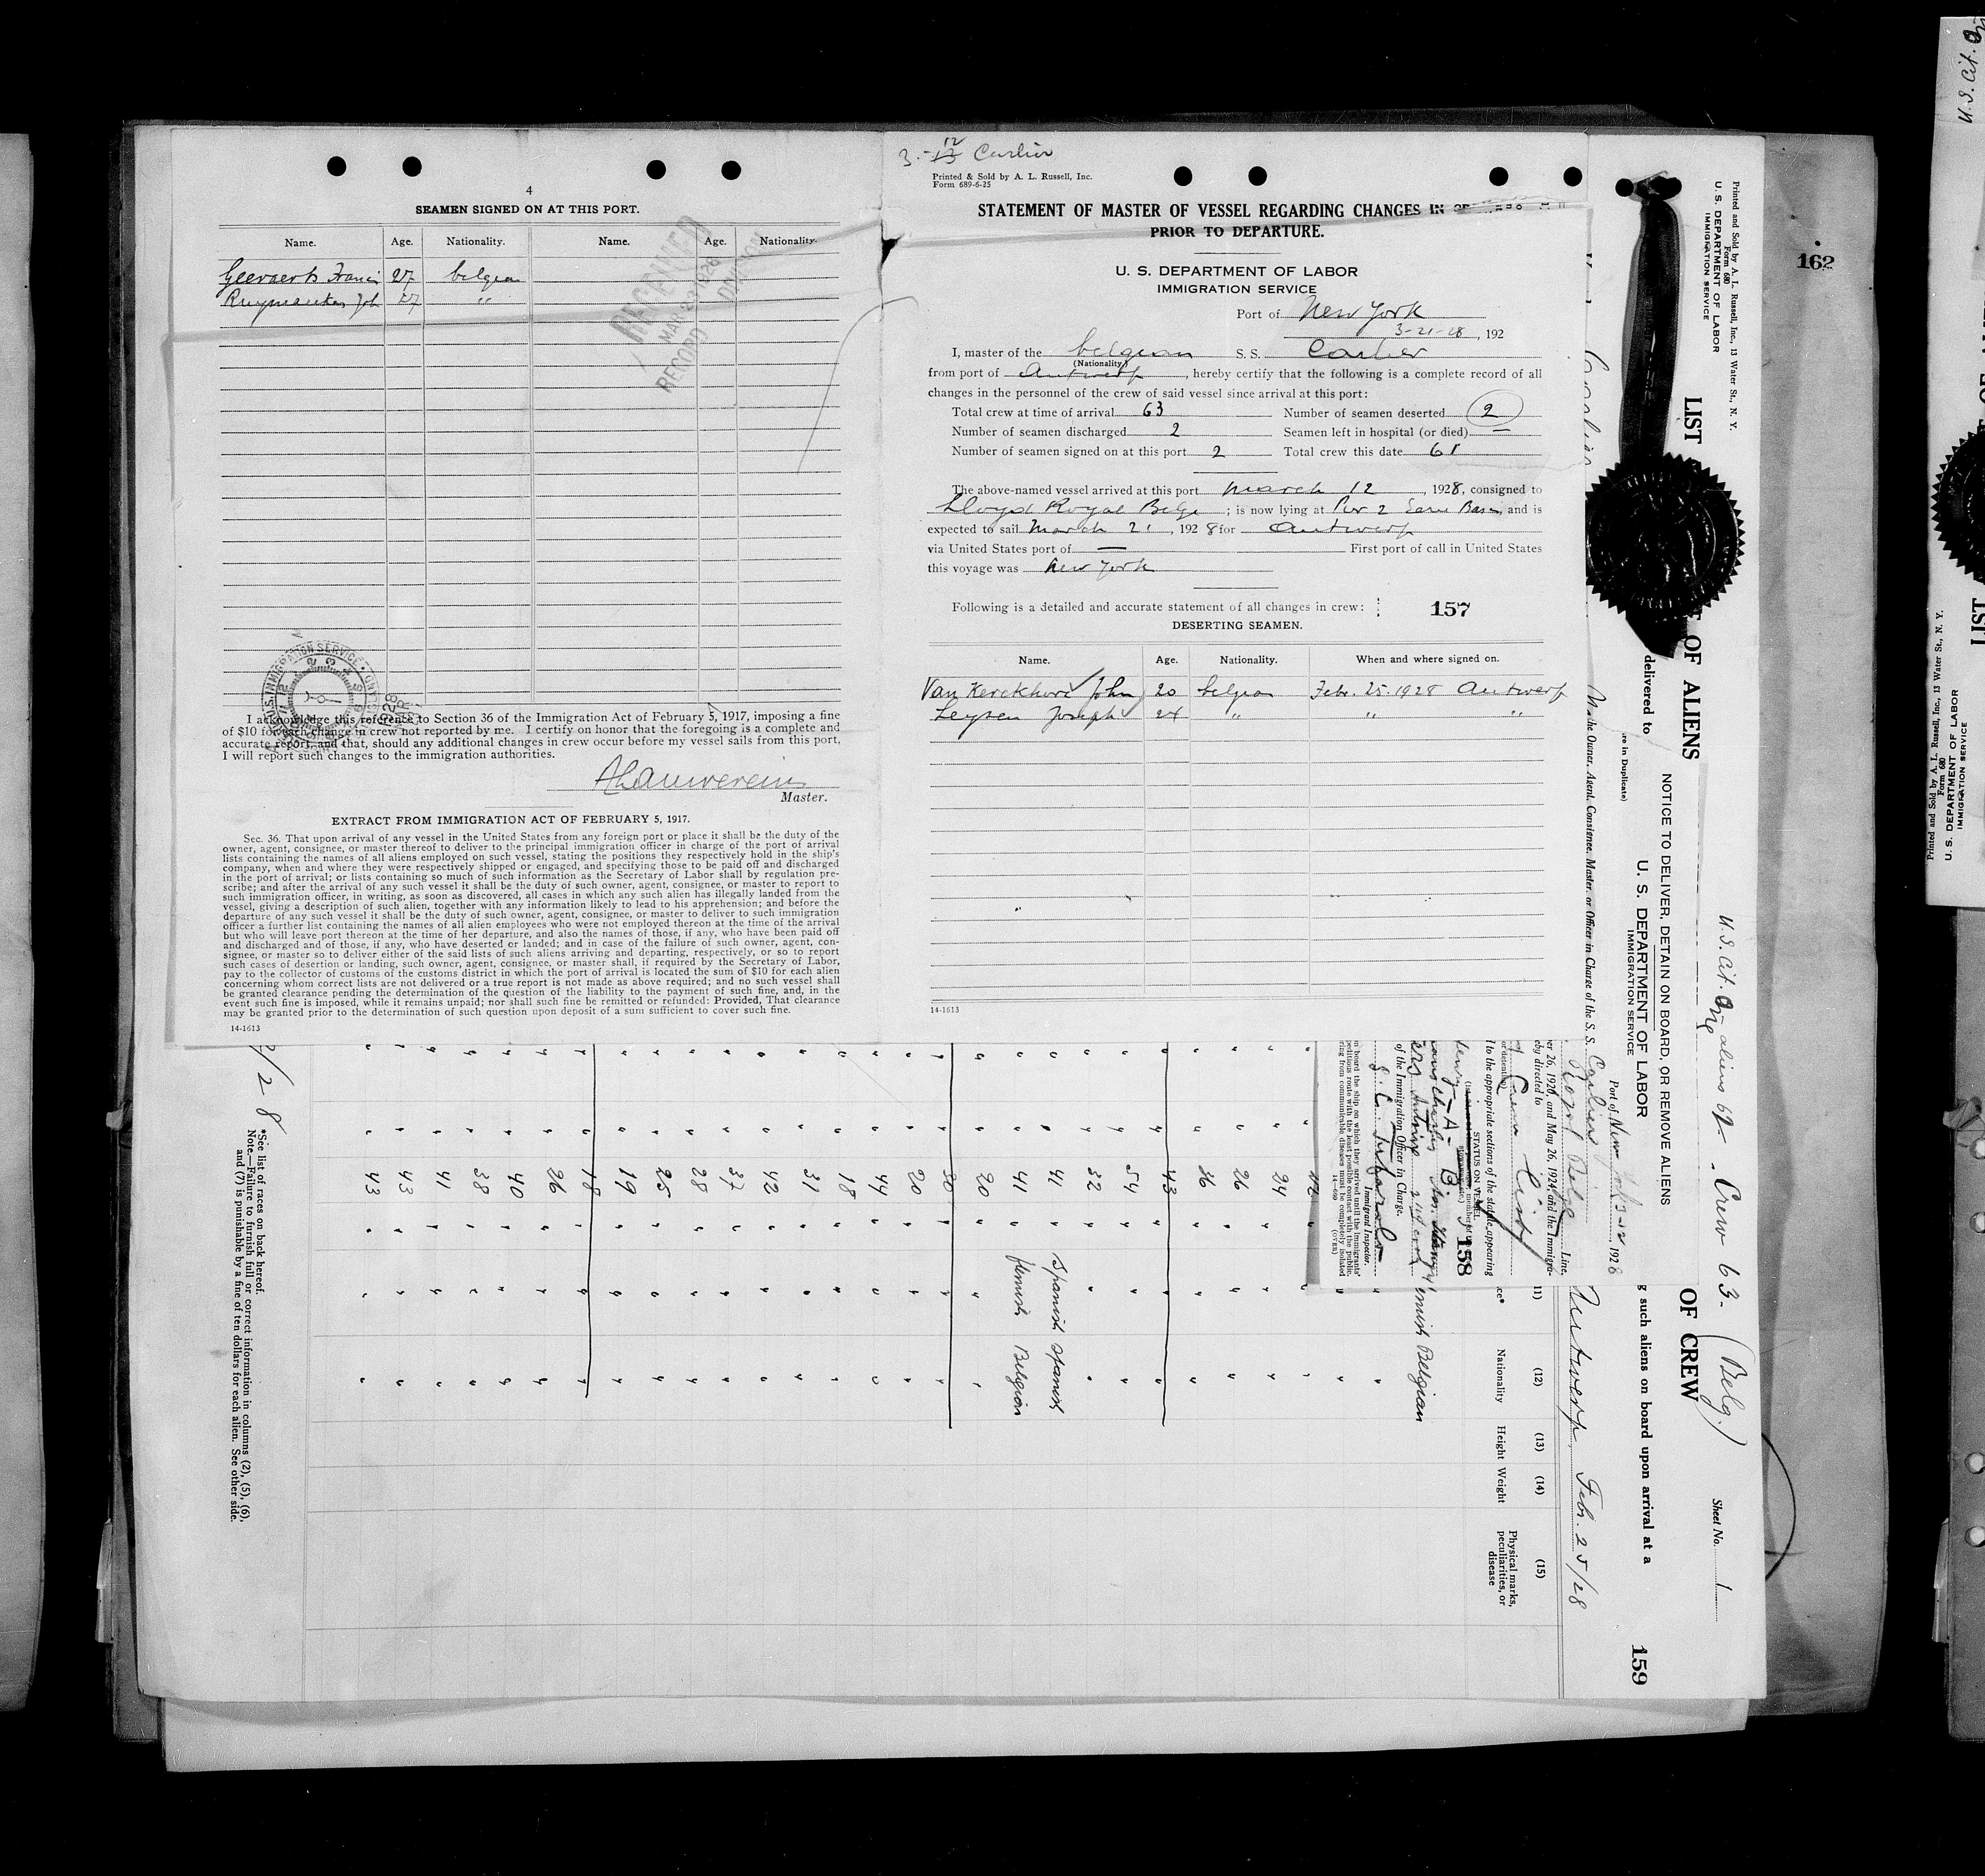 4
SEAMEN SIGNED ON AT THIS PORT.
Name. Age. Nationality. Name. Age. Nationality.
Geevaerts Francis 27 belgian
John 27 "
RECEIVED
MAR 23 1928
RECORD DIVISION
I acknowledge this reference to Section 36 of the Immigration Act of February 5, 1917, imposing a fine
of $10 for each change in crew not reported by me. I certify on honor that the foregoing is a complete and
accurate report, and that, should any additional changes in crew occur before my vessel sails from this port,
I will report such changes to the immigration authorities.
Master.
EXTRACT FROM IMMIGRATION ACT OF FEBRUARY 5, 1917.
Sec. 36. That upon arrival of any vessel in the United States from any foreign port or place it shall be the duty of the
owner, agent, consignee, or master thereof to deliver to the principal immigration officer in charge of the port of arrival
lists containing the names of all aliens employed on such vessel, stating the positions they respectively hold in the ship's
company, when and where they were respectively shipped or engaged, and specifying those to be paid off and discharged
in the port of arrival; or lists containing so much of such information as the Secretary of Labor shall by regulation pre-
scribe; and after the arrival of any such vessel it shall be the duty of such owner, agent, consignee, or master to report to
such immigration officer, in writing, as soon as discovered, all cases in which any such alien has illegally landed from the
vessel, giving a description of such alien, together with any information likely to lead to his apprehension; and before the
departure of any such vessel it shall be the duty of such owner, agent, consignee, or master to deliver to such immigration
officer a further list containing the names of all alien employees who were not employed thereon at the time of the arrival
but who will leave port thereon at the time of her departure, and also the names of those, if any, who have been paid off
and discharged and of those, if any, who have deserted or landed; and in case of the failure of such owner, agent, con-
signee, or master so to deliver either of the said lists of such aliens arriving and departing, respectively, or so to report
such cases of desertion or landing, such owner, agent, consignee, or master shall, if required by the Secretary of Labor,
pay to the collector of customs of the customs district in which the port of arrival is located the sum of $10 for each alien
concerning whom correct lists are not delivered or a true report is not made as above required; and no such vessel shall
be granted clearance pending the determination of the question of the liability to the payment of such fine, and, in the
event such fine is imposed, while it remains unpaid; nor shall such fine be remitted or refunded: Provided, That clearance
may be granted prior to the determination of such question upon deposit of a sum sufficient to cover such fine.
14-1613
3.-12 Carlier
Printed & Sold by A. L. Russell, Inc.
Form 689-6-25
STATEMENT OF MASTER OF VESSEL REGARDING CHANGES IN
PRIOR TO DEPARTURE.
U. S. DEPARTMENT OF LABOR
IMMIGRATION SERVICE
Port of New York
3-21-28, 192
I, master of the belgian S. S. Carlier
(Nationality)
from port of Antwerp, hereby certify that the following is a complete record of all
changes in the personnel of the crew of said vessel since arrival at this port:
Total crew at time of arrival 63 Number of seamen deserted 2
Number of seamen discharged 2 Seamen left in hospital (or died) —
Number of seamen signed on at this port 2 Total crew this date 61
The above-named vessel arrived at this port March 12, 1928, consigned to
Lloyd Royal Belge; is now lying at Pier 2 Erie Basin, and is
expected to sail March 21, 1928 for Antwerp
via United States port of — First port of call in United States
this voyage was New York
Following is a detailed and accurate statement of all changes in crew: 157
DESERTING SEAMEN.
Name. Age. Nationality. When and where signed on.
Van Kerckhove John 20 belgian Febr. 25.1928 Antwerp
Leysen Joseph 24 " " "
14-1613
Printed and Sold by A. L. Russell, Inc., 13 Water St., N. Y.
Form 680
U. S. DEPARTMENT OF LABOR
IMMIGRATION SERVICE
LIST OF ALIENS OF CREW
U.S. Cit. aliens 62 - Crew 63 - (Belg.)
Sheet No. 1
delivered to
g such aliens on board upon arrival at a
159
NOTICE TO DELIVER, DETAIN ON BOARD, OR REMOVE ALIENS
U. S. DEPARTMENT OF LABOR
IMMIGRATION SERVICE
re in Duplicate)
Port of New York 3-12 1928
To the Owner, Agent, Consignee, Master, or Officer in Charge of the S. S. Carlier
Royal Belge Line.
Antwerp Febr. 25/28
er 26, 1920, and May 26, 1924, and the Immigra-
by directed to
Crew List
l to the appropriate sections of the statute, appearing
STATUS ON VESSEL
158
of the Immigration Officer in Charge.
Immigrant Inspector.
(OVER)
(11) (12) (13) (14) (15)
Nationality Height Weight Physical marks, peculiarities, or disease
Flemish Belgian
Spanish Spanish
flemish Belgian
24
26
36
43
54
32
41
41
20
30
20
44
18
31
42
37
28
25
19
18
26
40
38
41
43
43
*See list of races on back hereof.
Note.—Failure to furnish full or correct information in columns (2), (5), (6),
and (7) is punishable by a fine of ten dollars for each alien. See other side.
162
Printed and Sold by A. L. Russell, Inc., 13 Water St., N. Y.
Form 680
U. S. DEPARTMENT OF LABOR
IMMIGRATION SERVICE
LIST